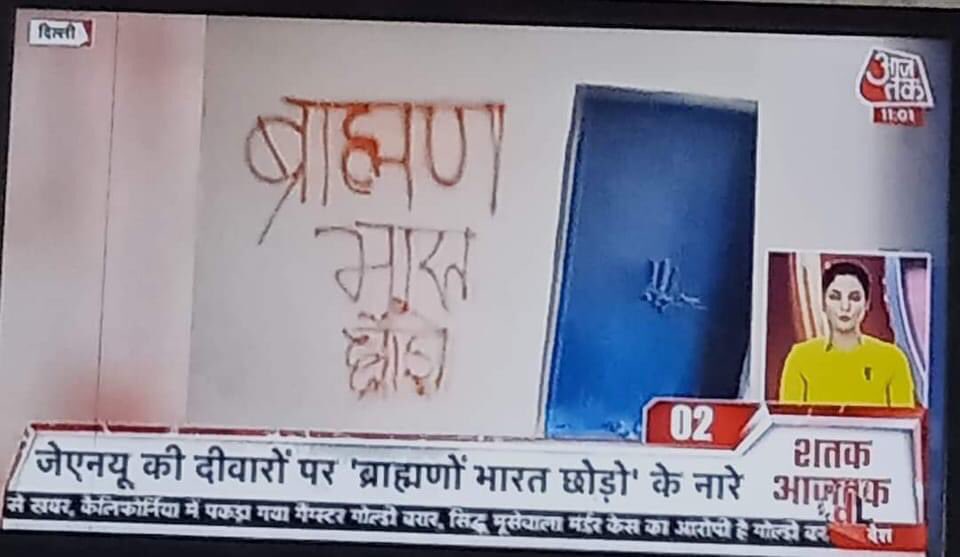 दिल्ली
आज
तक
11:01
ब्राह्मण
भारत
छोड़ो
02
जेएनयू की दीवारों पर 'ब्राह्मणों भारत छोड़ो' के नारे
शतक
आजतक
से खबर, कैलिफोर्निया में पकड़ा गया गैंगस्टर गोल्डी बरार, सिद्धू मूसेवाला मर्डर केस का आरोपी है गोल्डी
देश